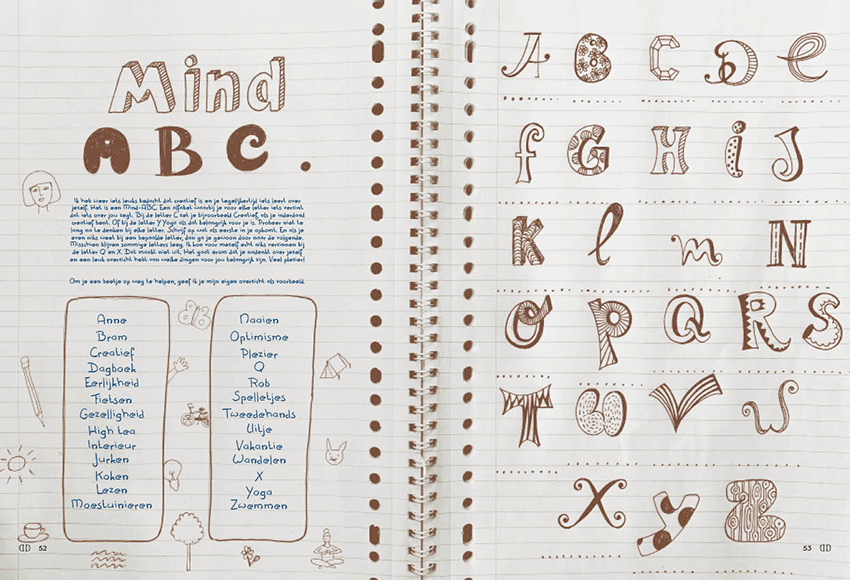 Mind
ABC.
Ik heb weer iets leuks bedacht dat creatief is en je tegelijkertijd iets leert over
jezelf. Het is een Mind-ABC. Een alfabet waarbij je voor elke letter iets verzint
dat iets over jou zegt. Bij de letter C zet je bijvoorbeeld Creatief, als je inderdaad
creatief bent. Of bij de letter Y Yoga als dat belangrijk voor je is. Probeer niet te
lang na te denken bij elke letter. Schrijf op wat als eerste in je opkomt. En als je
even niks weet bij een bepaalde letter, dan ga je gewoon door naar de volgende.
Misschien blijven sommige letters leeg. Ik kon voor mezelf echt niks verzinnen bij
de letter Q en X. Dat maakt niet uit. Het gaat erom dat je nadenkt over jezelf
en een leuk overzicht hebt van welke dingen voor jou belangrijk zijn. Veel plezier!
Om je een beetje op weg te helpen, geef ik je mijn eigen overzicht als voorbeeld.
Anne
Bram
Creatief
Dagboek
Eerlijkheid
Fietsen
Gezelligheid
High tea
Interieur
Jurken
Koken
Lezen
Moestuinieren
Naaien
Optimisme
Plezier
Q
Rob
Spelletjes
Tweedehands
Uitje
Vakantie
Wandelen
X
Yoga
Zwemmen
52
A B C D e
f G H i J
K l m N
O P Q R S
T U V W
X y Z
53